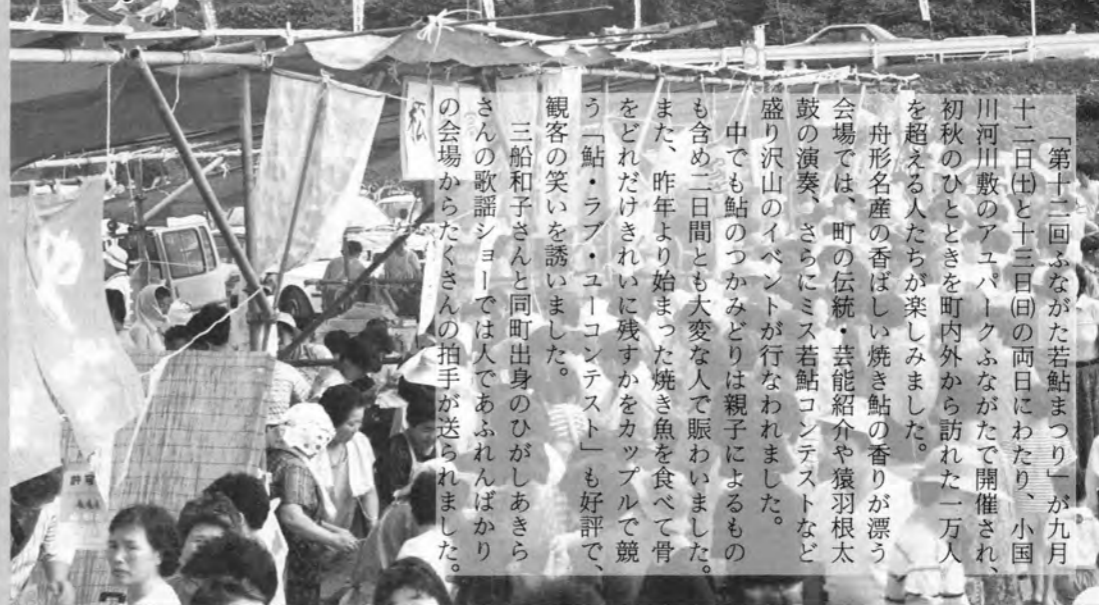 「第十二回ふながた若鮎まつり」が九月
十二日㈯と十三日㈰の両日にわたり、小国
川河川敷のアユパークふながたで開催され、
初秋のひとときを町内外から訪れた一万人
を超える人たちが楽しみました。
舟形名産の香ばしい焼き鮎の香りが漂う
会場では、町の伝統・芸能紹介や猿羽根太
鼓の演奏、さらにミス若鮎コンテストなど
盛り沢山のイベントが行なわれました。
中でも鮎のつかみどりは親子によるもの
も含め二日間とも大変な人で賑わいました。
また、昨年より始まった焼き魚を食べて骨
をどれだけきれいに残すかをカップルで競
う「鮎・ラブ・ユーコンテスト」も好評で、
観客の笑いを誘いました。
三船和子さんと同町出身のひがしあきら
さんの歌謡ショーでは人であふれんばかり
の会場からたくさんの拍手が送られました。